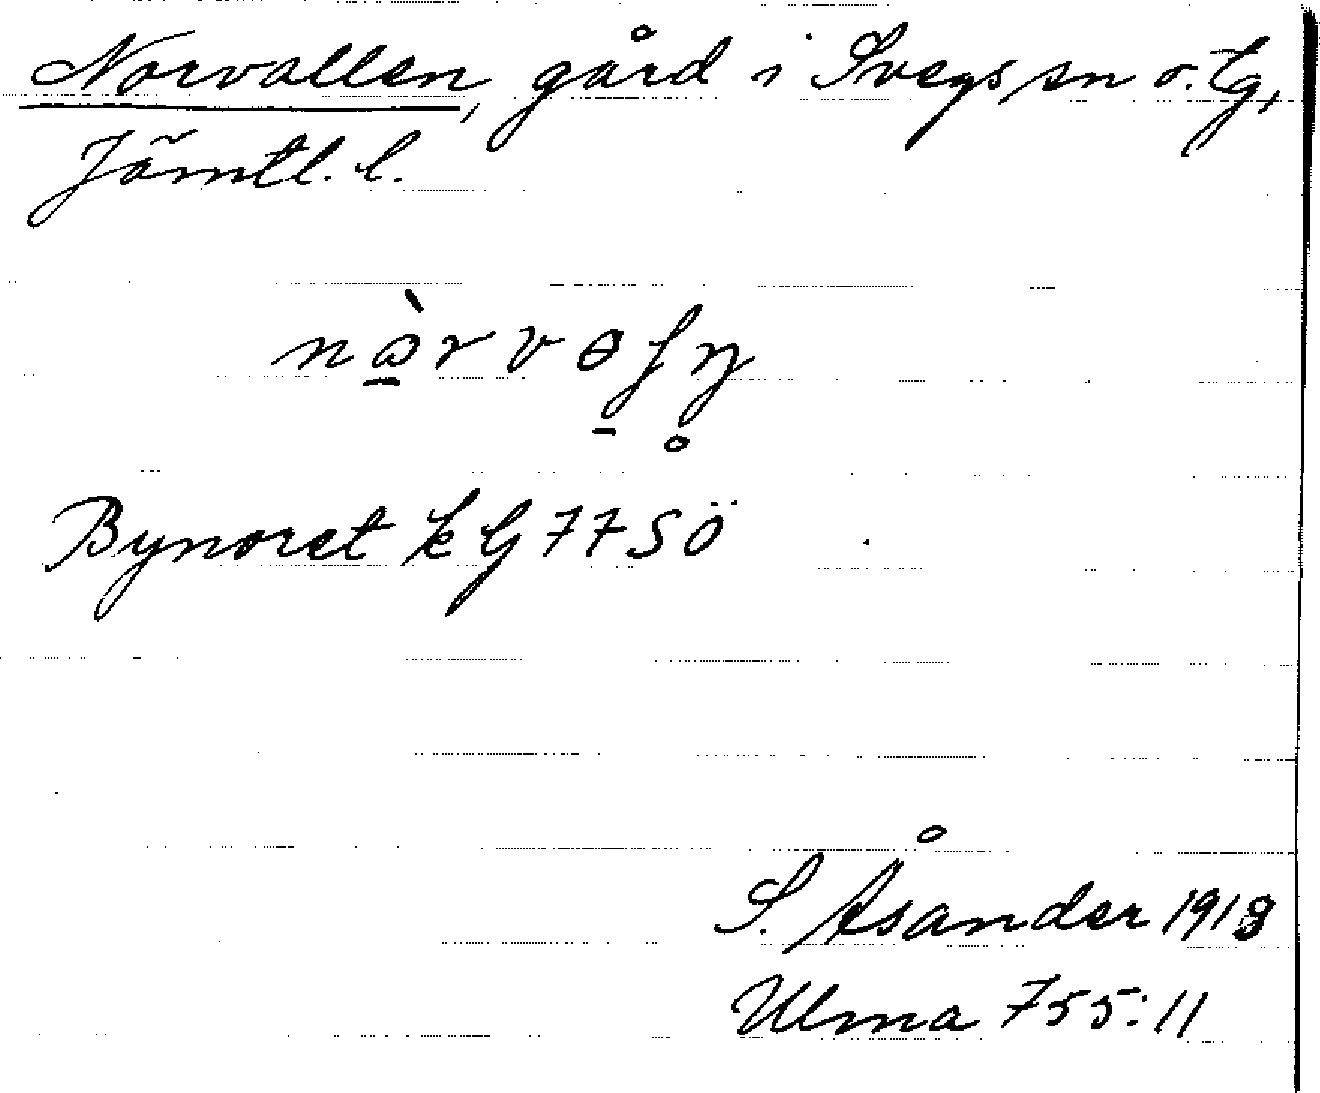 Norvallen, gård i Svegs sn o. tg,
Jämtl. l.
Bynoret kG77SÖ
S. Åsander 1918
Ulma 755:11